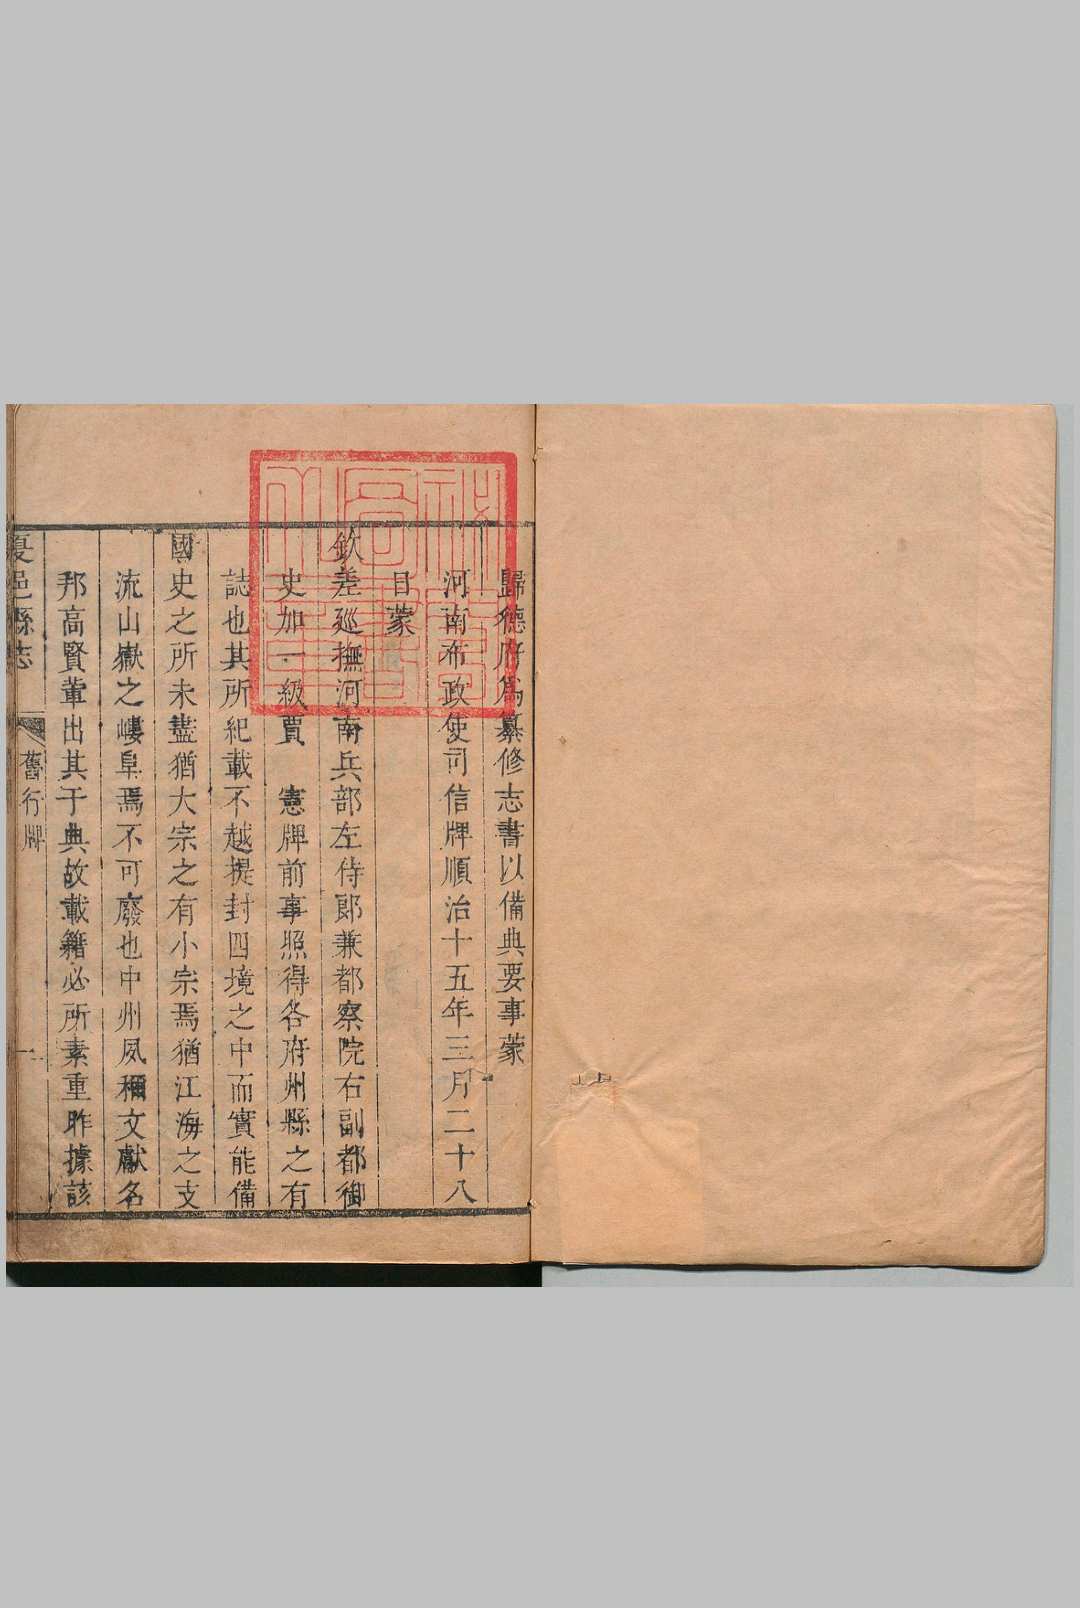 歸德府爲纂修志書以備典要事蒙
河南布政使司信牌順治十五年三月二十八
目蒙
欽差廵撫河南兵部左侍郎兼都察院右副都御
史加一級賈　憲牌前事照得各府州縣之有
誌也其所紀載不越提封四境之中而實能備
國史之所未盡猶大宗之有小宗焉猶江海之支
流山嶽之嶁阜焉不可廢也中州夙稱文獻名
邦高賢輩出其于典故載籍必所素重昨據該
夏邑縣志　舊行牌　一